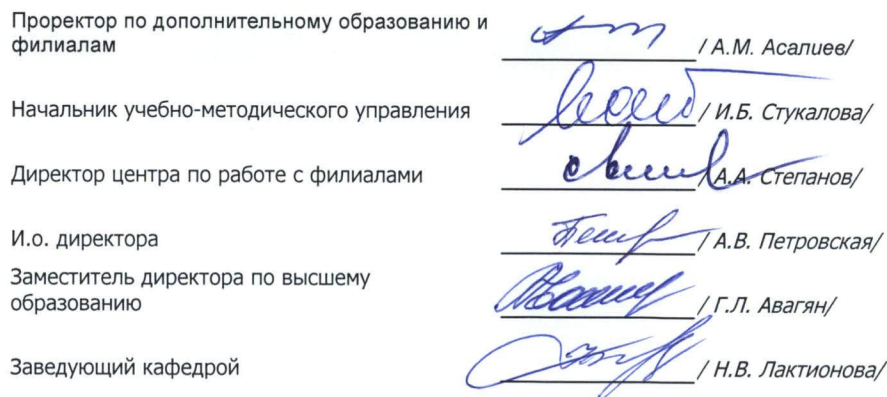 Проректор по дополнительному образованию и
филиалам / А.М. Асалиев/
Начальник учебно-методического управления / И.Б. Стукалова/
Директор центра по работе с филиалами /А.А. Степанов/
И.о. директора / А.В. Петровская/
Заместитель директора по высшему
образованию / Г.Л. Авагян/
Заведующий кафедрой / Н.В. Лактионова/